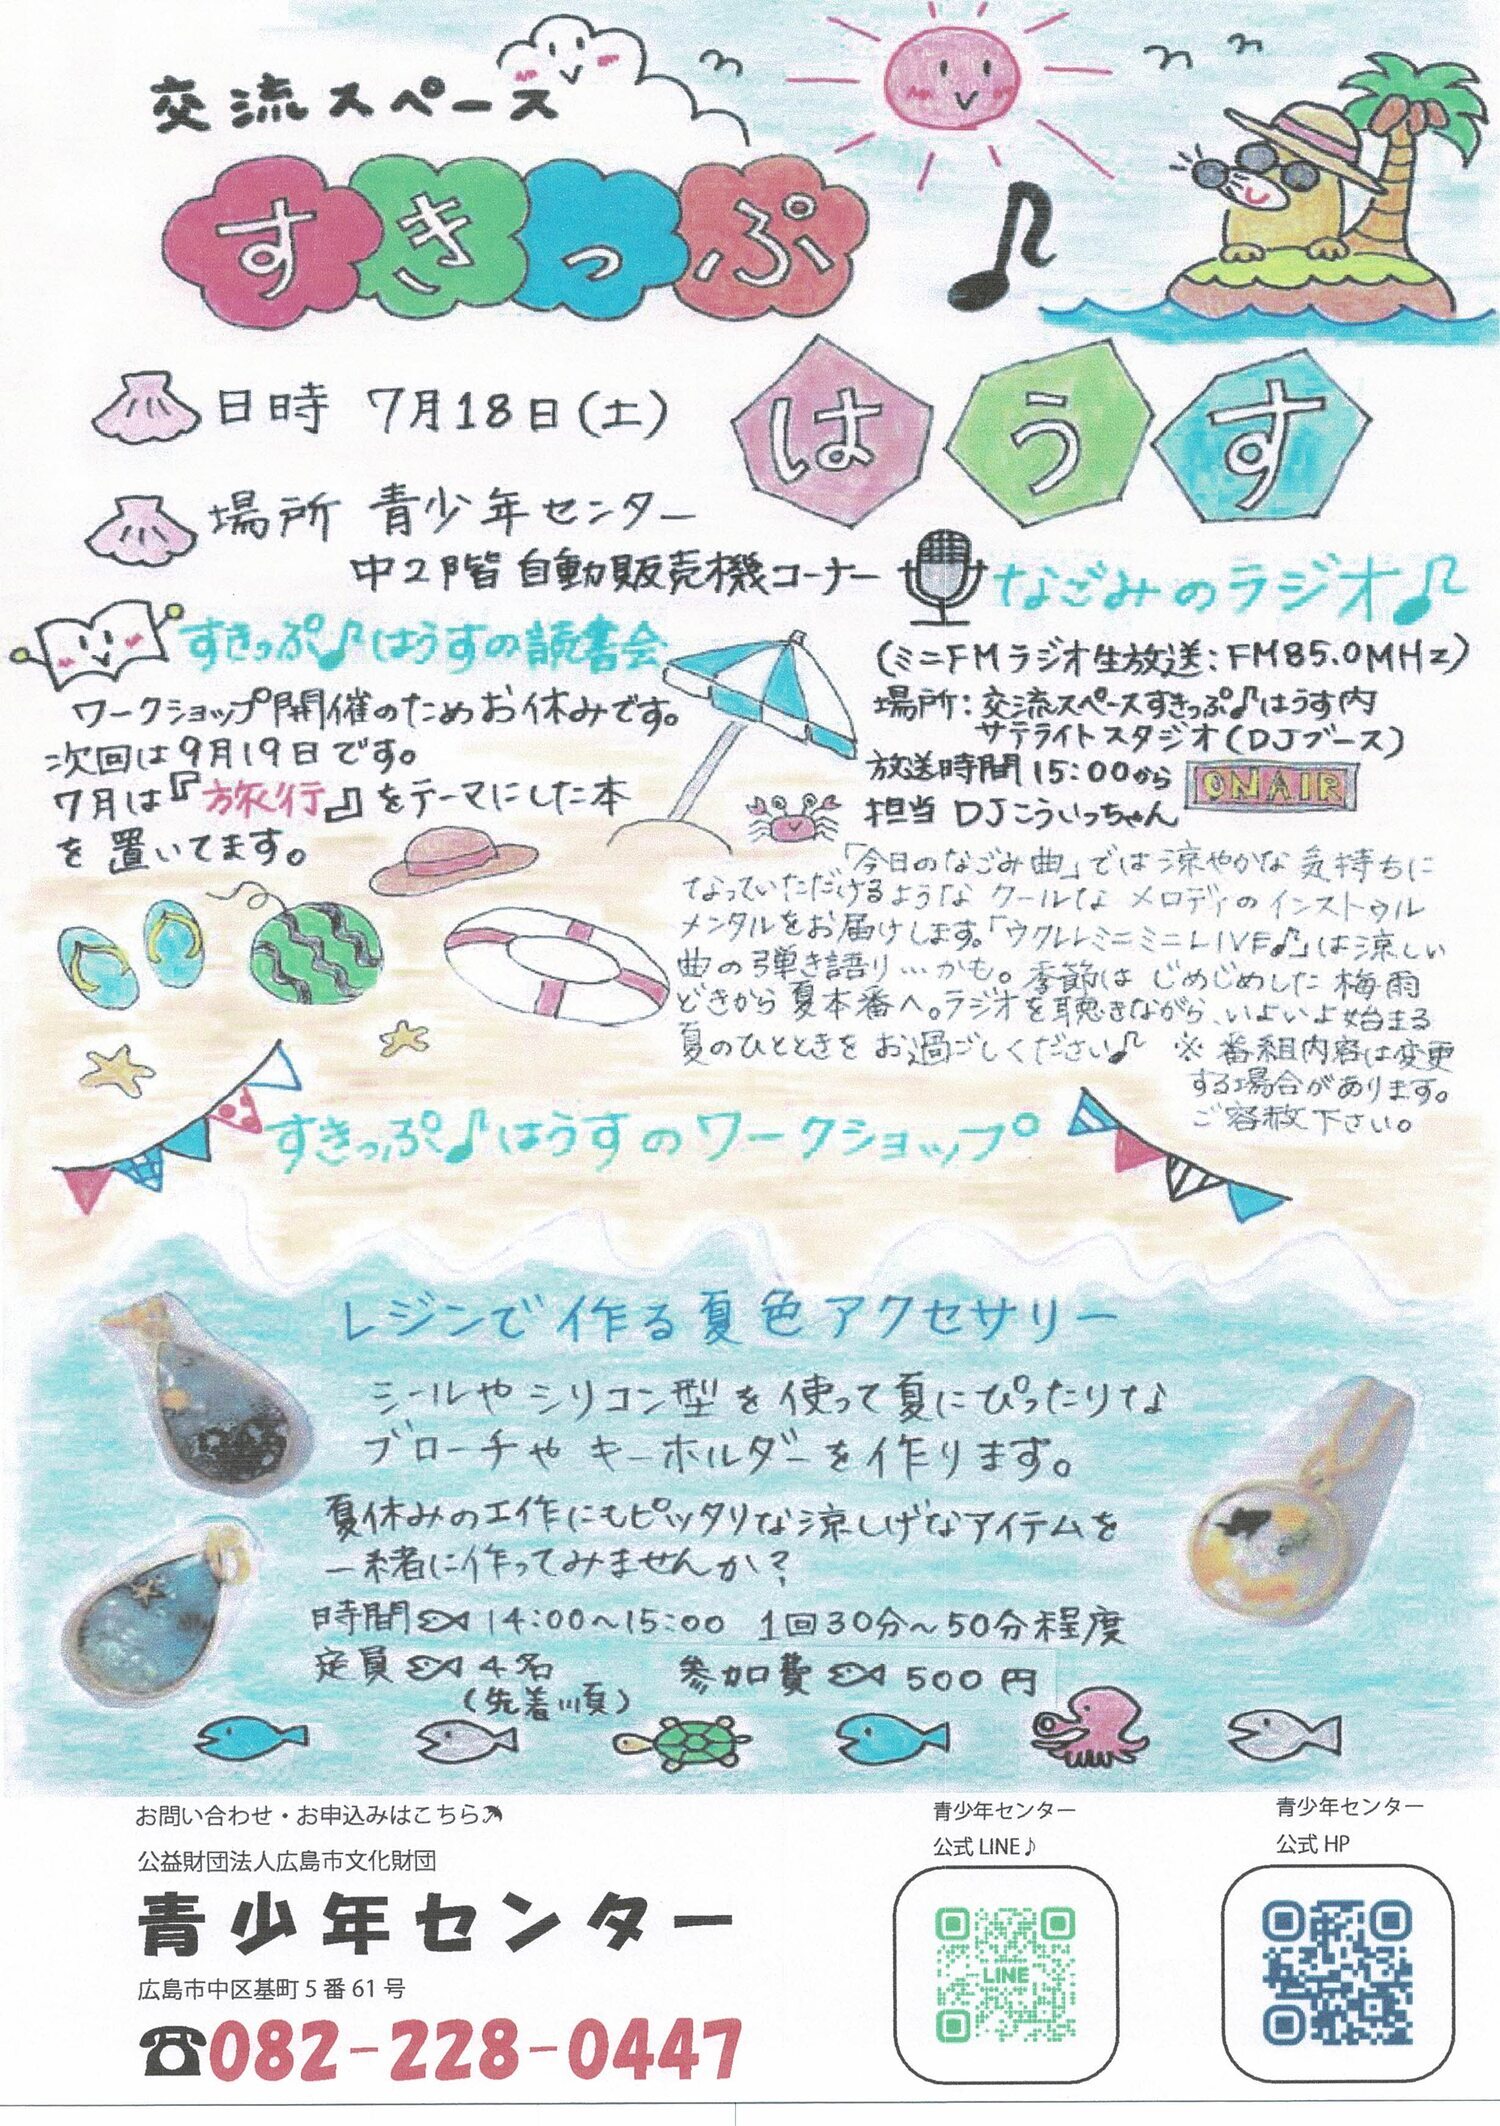 交流スペース
すきっぷ♪
はうす
日時 7月18日(土)
場所 青少年センター
中2階 自動販売機コーナー
すきっぷ♪はうすの読書会
ワークショップ開催のためお休みです。
次回は9月19日です。
7月は『旅行』をテーマにした本
を置いてます。
なごみのラジオ♪
(ミニFMラジオ生放送:FM85.0MHz)
場所:交流スペースすきっぷ♪はうす内
サテライトスタジオ(DJブース)
放送時間15:00から
ON AIR
担当 DJこういっちゃん
「今日のなごみ曲」では涼やかな気持ちに
なっていただけるようなクールなメロディのインストゥル
メンタルをお届けします。「ウクレレミニミニLIVE♪」は涼しい
曲の弾き語り…かも。季節はじめじめした梅雨
どきから夏本番へ。ラジオを聴きながら、いよいよ始まる
夏のひとときをお過ごしください♪ ※番組内容は変更
する場合があります。
ご容赦下さい。
すきっぷ♪はうすのワークショップ
レジンで作る夏色アクセサリー
シールやシリコン型を使って夏にぴったりな
ブローチやキーホルダーを作ります。
夏休みの工作にもピッタリな涼しげなアイテムを
一緒に作ってみませんか?
時間 14:00～15:00 1回30分～50分程度
定員 4名 参加費 500円
(先着順)
お問い合わせ・お申込みはこちら
公益財団法人広島市文化財団
青少年センター
広島市中区基町5番61号
☎082-228-0447
青少年センター
公式LINE♪
LINE
青少年センター
公式HP